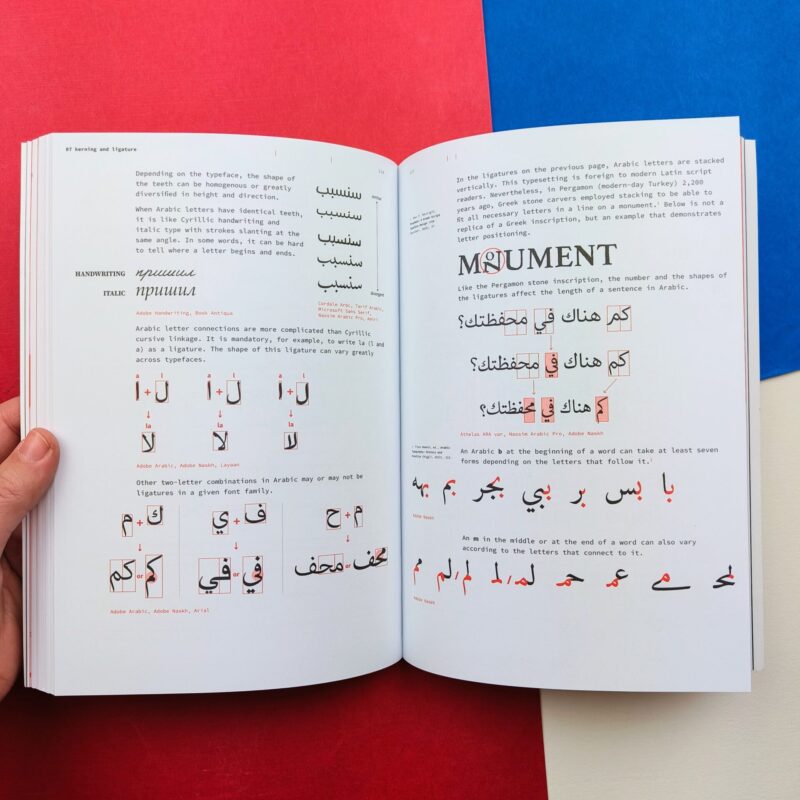 07 kerning and ligature
Depending on the typeface, the shape of
the teeth can be homogenous or greatly
diversified in height and direction.
When Arabic letters have identical teeth,
it is like Cyrillic handwriting and
italic type with strokes slanting at the
same angle. In some words, it can be hard
to tell where a letter begins and ends.
سنسبب
سنسبب
سنسبب
سنسبب
سنسبب
HANDWRITING пришил
ITALIC пришил
Adobe Handwriting, Book Antiqua
Cordale Arbc, Tarif Arabic,
Microsoft Sans Serif,
Nassim Arabic Pro, Amiri
Arabic letter connections are more complicated than Cyrillic
cursive linkage. It is mandatory, for example, to write la (l and
a) as a ligature. The shape of this ligature can vary greatly
across typefaces.
a l a l a l
ا + ل ا + ل ا + ل
la la la
لا لا لا
Adobe Arabic, Adobe Naskh, Layaan
Other two-letter combinations in Arabic may or may not be
ligatures in a given font family.
م + ك ي + ف ح + م
كم or كم في or في محف or محف
Adobe Arabic, Adobe Naskh, Arial
In the ligatures on the previous page, Arabic letters are stacked
vertically. This typesetting is foreign to modern Latin script
readers. Nevertheless, in Pergamon (modern-day Turkey) 2,200
years ago, Greek stone carvers employed stacking to be able to
fit all necessary letters in a line on a monument. Below is not a
replica of a Greek inscription, but an example that demonstrates
letter positioning.
MONUMENT
Like the Pergamon stone inscription, the number and the shapes of
the ligatures affect the length of a sentence in Arabic.
كم هناك في محفظتك؟
كم هناك في محفظتك؟
كم هناك في محفظتك؟
Athelas ARA var, Nassim Arabic Pro, Adobe Naskh
An Arabic b at the beginning of a word can take at least seven
forms depending on the letters that follow it.
با بس بر ببي بجر بم بهه
Adobe Naskh
An m in the middle or at the end of a word can also vary
according to the letters that connect to it.
Adobe Naskh